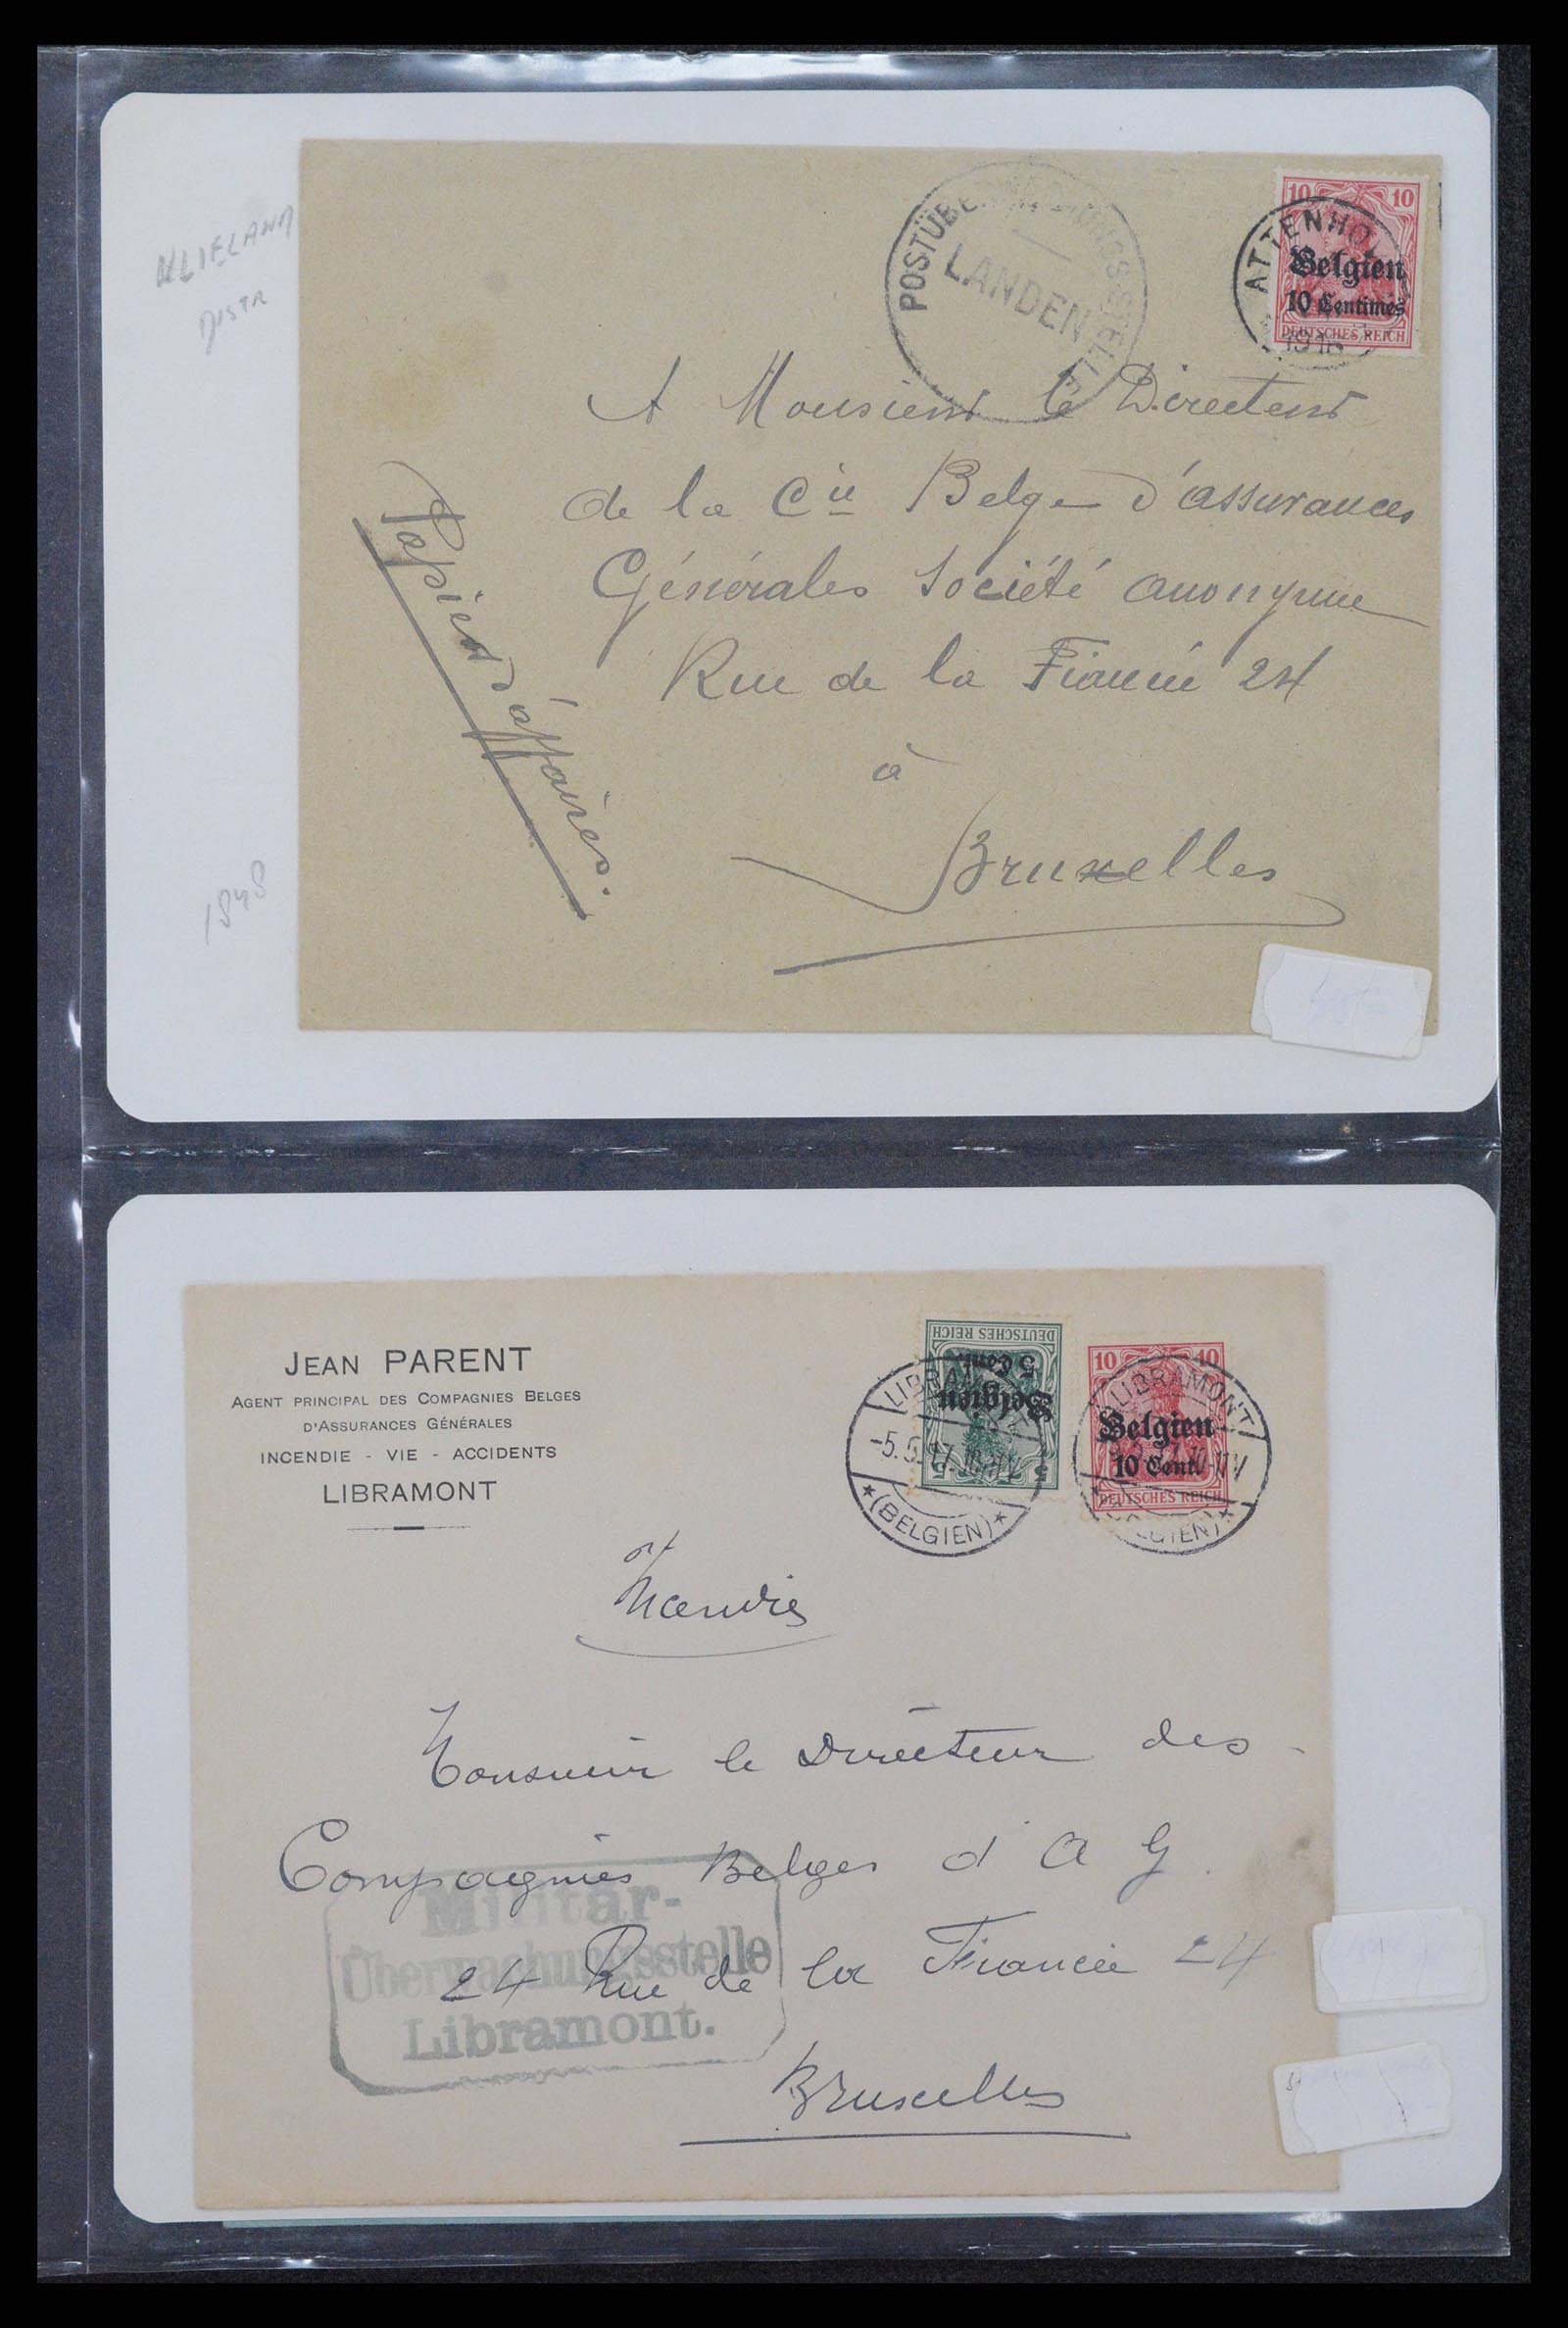 DISTR
POSTÜBERWACHUNGSSTELLE
LANDEN
10 10
ATTENHO
Belgien
10 Centimes
DEUTSCHES REICH
1916
A Monsieur le Directeur
de la Cie Belge d'assurances
Générales Société anonyme
Rue de la Fiancée 24
à
Bruxelles
Papiers d'affaires.
1848
JEAN PARENT
AGENT PRINCIPAL DES COMPAGNIES BELGES
D'ASSURANCES GÉNÉRALES
INCENDIE - VIE - ACCIDENTS
LIBRAMONT
DEUTSCHES REICH
5 Cent.
Belgien
5 5
LIBRAMONT
-5.5.17.
*(BELGIEN)*
10 10
LIBRAMONT
Belgien
10 Cent.
DEUTSCHES REICH
(BELGIEN)*
Monsieur le Directeur des
Compagnies Belges d'A G.
24 Rue de la Fiancée 24
Bruxelles
Militär-
Überwachungsstelle
Libramont.